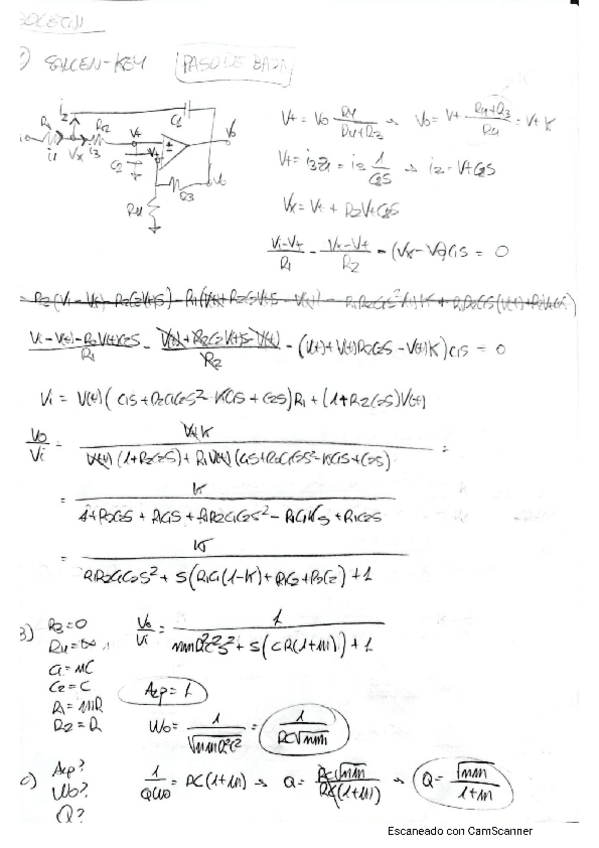 BOLETIN
1) SALLEN-KEY PASO DE BAJA
R1 R2 C1 C2 R3 R4 i1 i2 i3 Vx V+ Vo
V+ = Vo R4/(R4+R3) → Vo = V+ (R4+R3)/R4 = V+ K
V+ = i3 Z1 = i3 1/(C2S) → i3 = V+C2S
Vx = V+ + R2V+C2S
(Vi-Vx)/R1 - (Vx-V+)/R2 - (Vx-Vo)C1S = 0
(Vi - V(+) - R2V(+)C2S)/R1 - (V(+) + R2C2V(+)S - V(+))/R2 - (V(+) + V(+)R2C2S - V(+)K)C1S = 0
Vi = V(+)(C1S + R2C1C2S² - KC1S + C2S)R1 + (1+R2C2S)V(+)
Vo/Vi = V(+)K / (V(+)(1+R2C2S) + R1V(+)(C1S+R2C1C2S²-KC1S+C2S)) =
= K / (1+R2C2S + R1C1S + R1R2C1C2S² - R1C1KS + R1C2S)
= K / (R1R2C1C2S² + S(R1C1(1-K)+R1C2+R2C2) + 1)
B) R3=0
R4=∞
C1=nC
C2=C
R1=mR
R2=R
Vo/Vi = 1 / (mnR²C²S² + S(CR(1+m)) + 1
Alp = 1
Wo = 1/√(mnR²C²) = 1/(RC√mn)
c) Alp?
Wo?
Q?
1/(QWo) = RC(1+m) → Q = RC√mn / (RC(1+m)) → Q = √mn/(1+m)
Escaneado con CamScanner